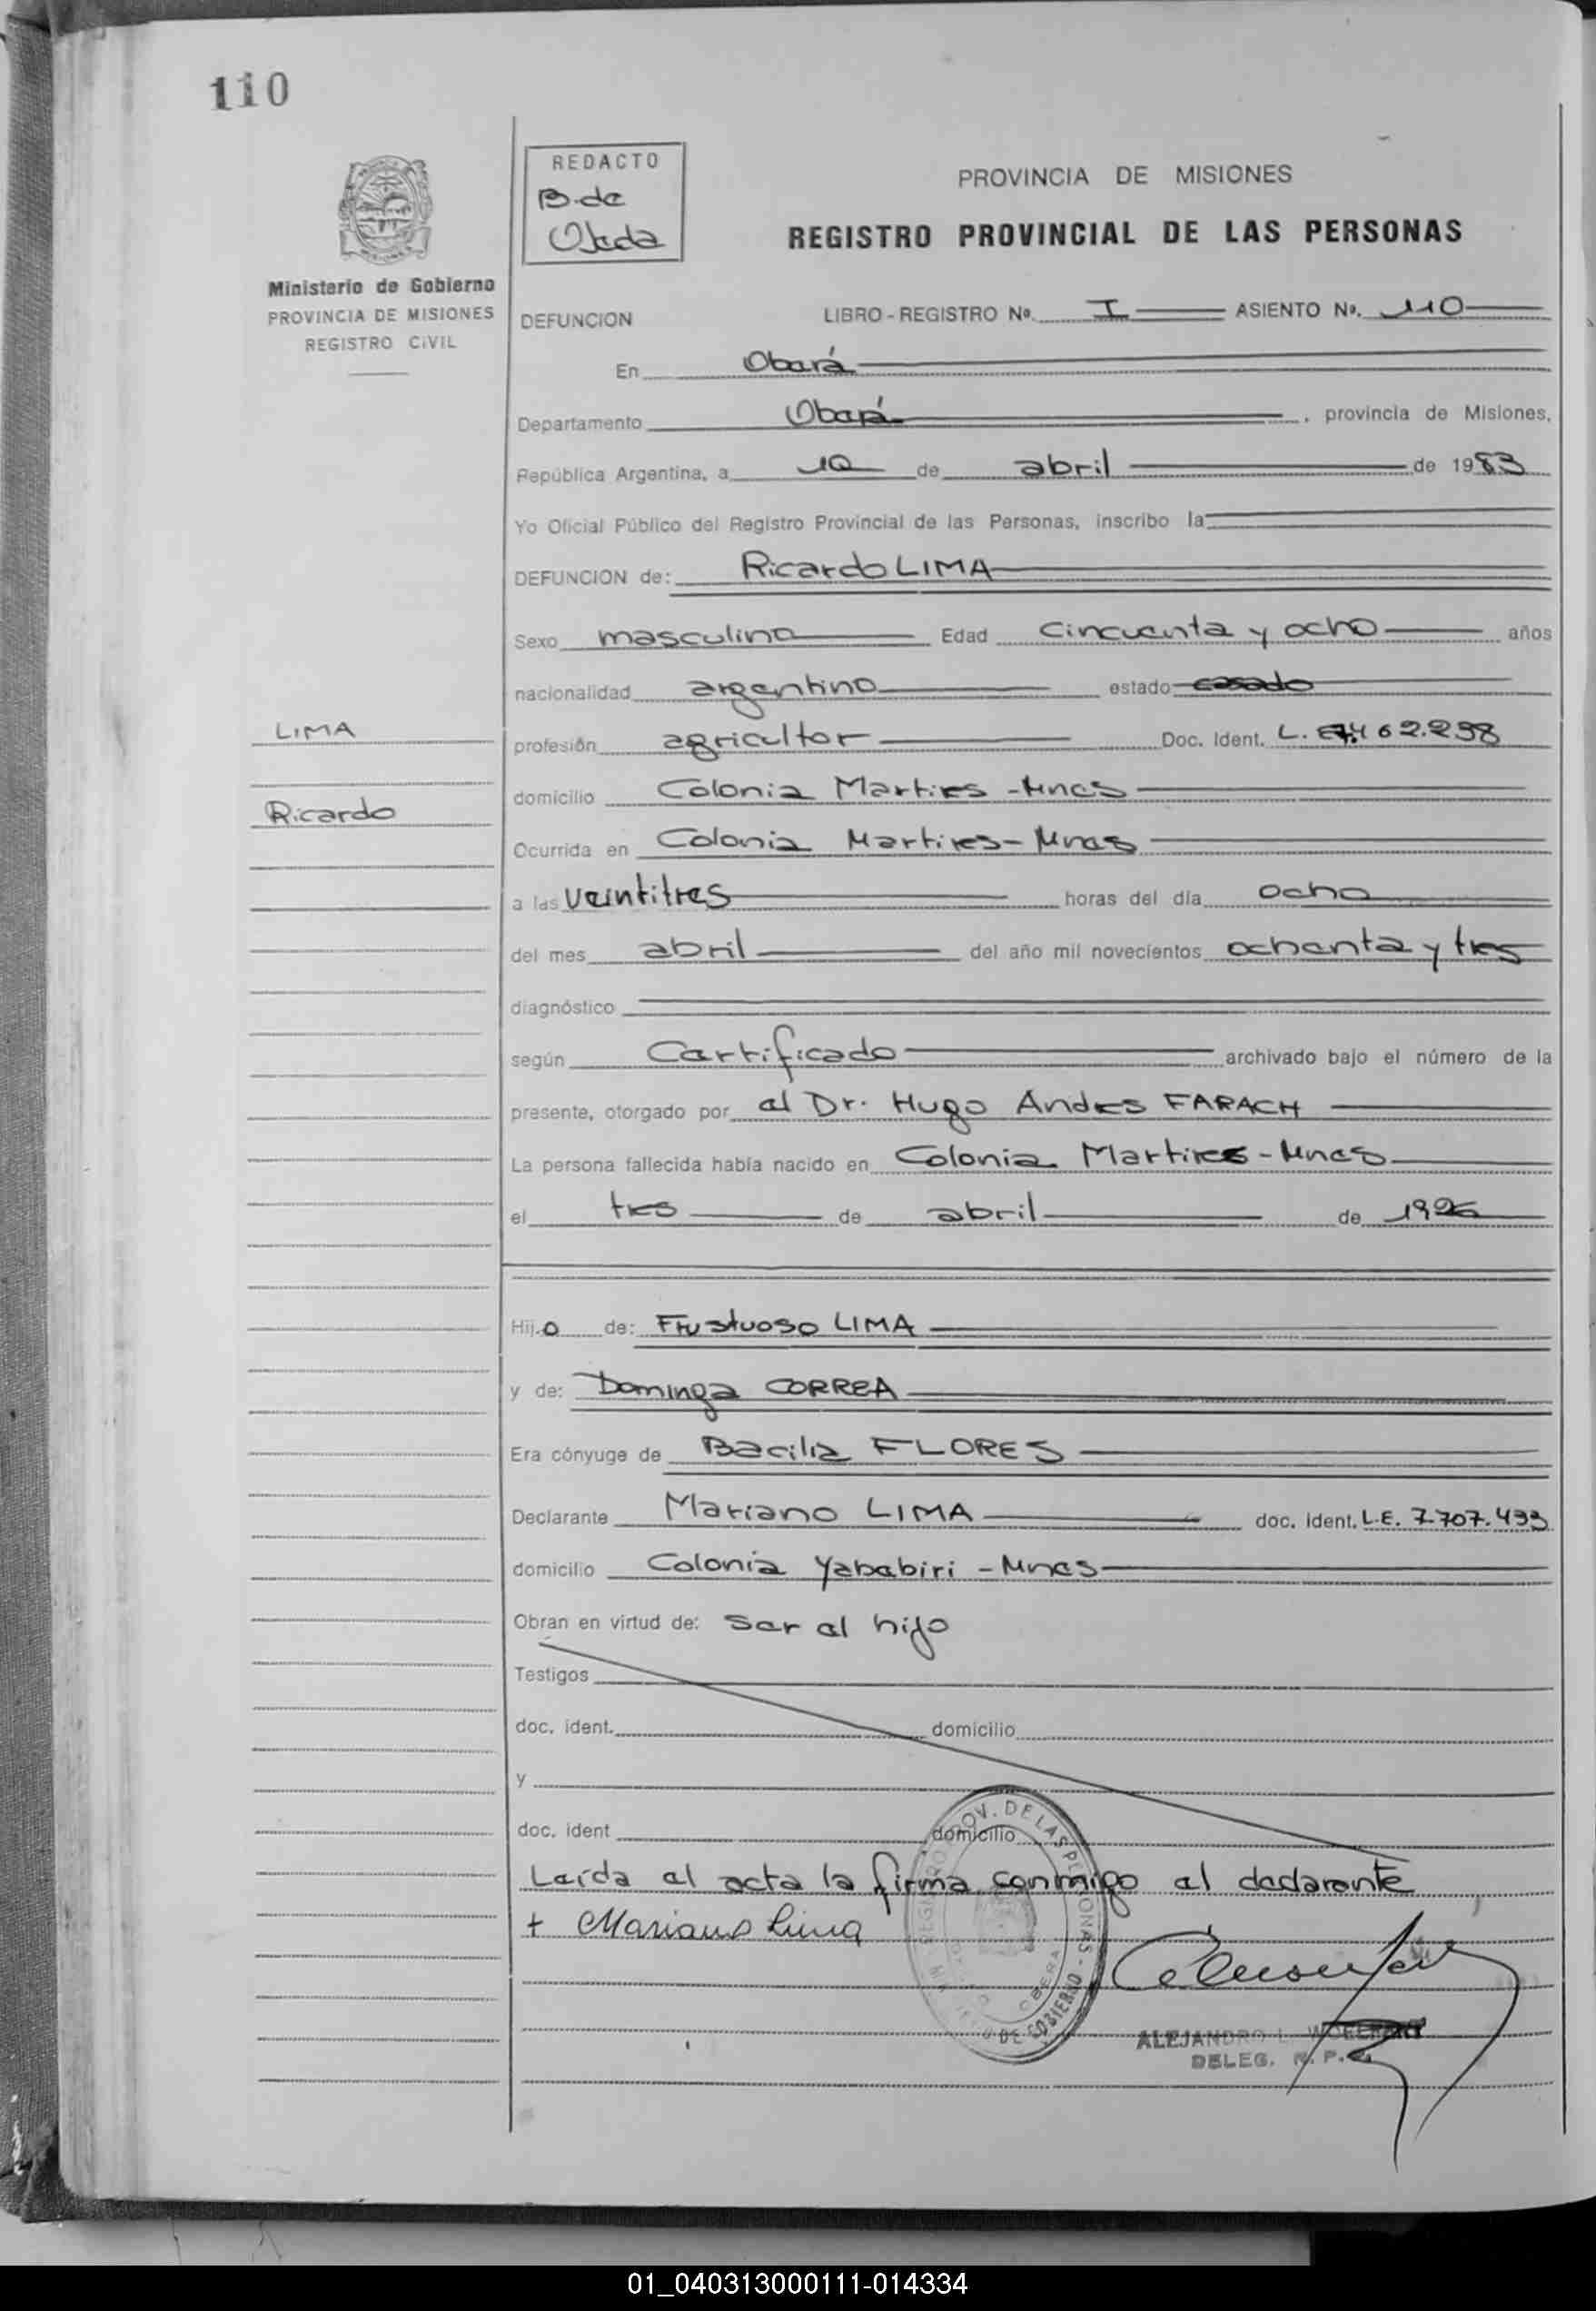 110
REDACTO
B. de
Ojeda
PROVINCIA DE MISIONES
REGISTRO PROVINCIAL DE LAS PERSONAS
Ministerio de Gobierno
PROVINCIA DE MISIONES
REGISTRO CIVIL
DEFUNCION LIBRO - REGISTRO Nº. I ASIENTO Nº. 110
En Oberá
Departamento Oberá, provincia de Misiones,
República Argentina, a 10 de abril de 1983
Yo Oficial Público del Registro Provincial de las Personas, inscribo la
DEFUNCION de: Ricardo LIMA
Sexo masculino Edad cincuenta y ocho años
nacionalidad argentino estado casado
LIMA
profesión agricultor Doc. Ident. L.
domicilio Colonia Martires - Mnes
Ricardo
Ocurrida en Colonia Martires - Mnes
a las veintitres horas del día ocho
del mes abril del año mil novecientos ochenta y tres
diagnóstico
según Certificado archivado bajo el número de la
presente, otorgado por el Dr. Hugo Andres FARACH
La persona fallecida había nacido en Colonia Martires - Mnes
el tres de abril de
Hijo de: Frustuoso LIMA
y de: Dominga CORREA
Era cónyuge de Bacilia FLORES
Declarante Mariano LIMA doc. ident. L.E. 7.707.493
domicilio Colonia Yababiri - Mnes
Obran en virtud de: ser el hijo
Testigos
doc. ident. domicilio
y
doc. ident domicilio
Leída el acta la firma conmigo el declarante
+ Mariano Lima
PROV. DE LAS PERSONAS - DE GOBIERNO
OBERA
ALEJANDRO L.
DELEG. R. P.
01_040313000111-014334